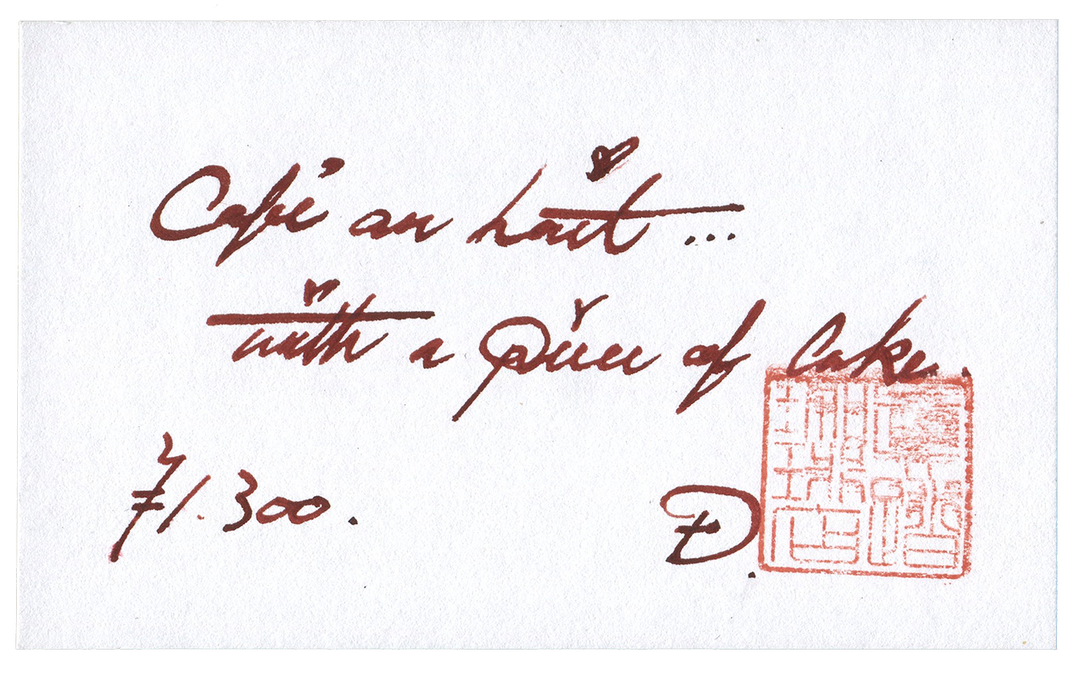 Café au lait ...
with a piece of cake.
¥1.300.
D.